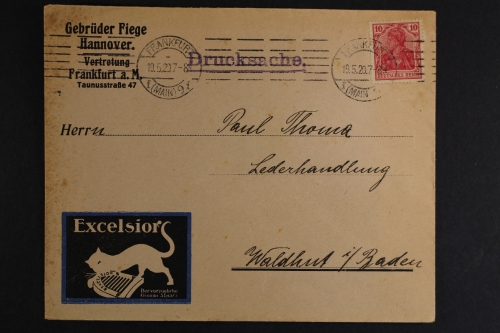 Gebrüder Fiege
Hannover.
Vertretung
Frankfurt a. M.
Taunusstraße 47
FRANKFURT
19.5.20.7-8
(MAIN) 9
Drucksache.
19.5.20.7-8
(MAIN)
10 10
DEUTSCHES REICH
Herrn Paul Thoma
Lederhandlung
Waldhut i/Baden
Excelsior
Der rutschfeste
Gummi-Absatz